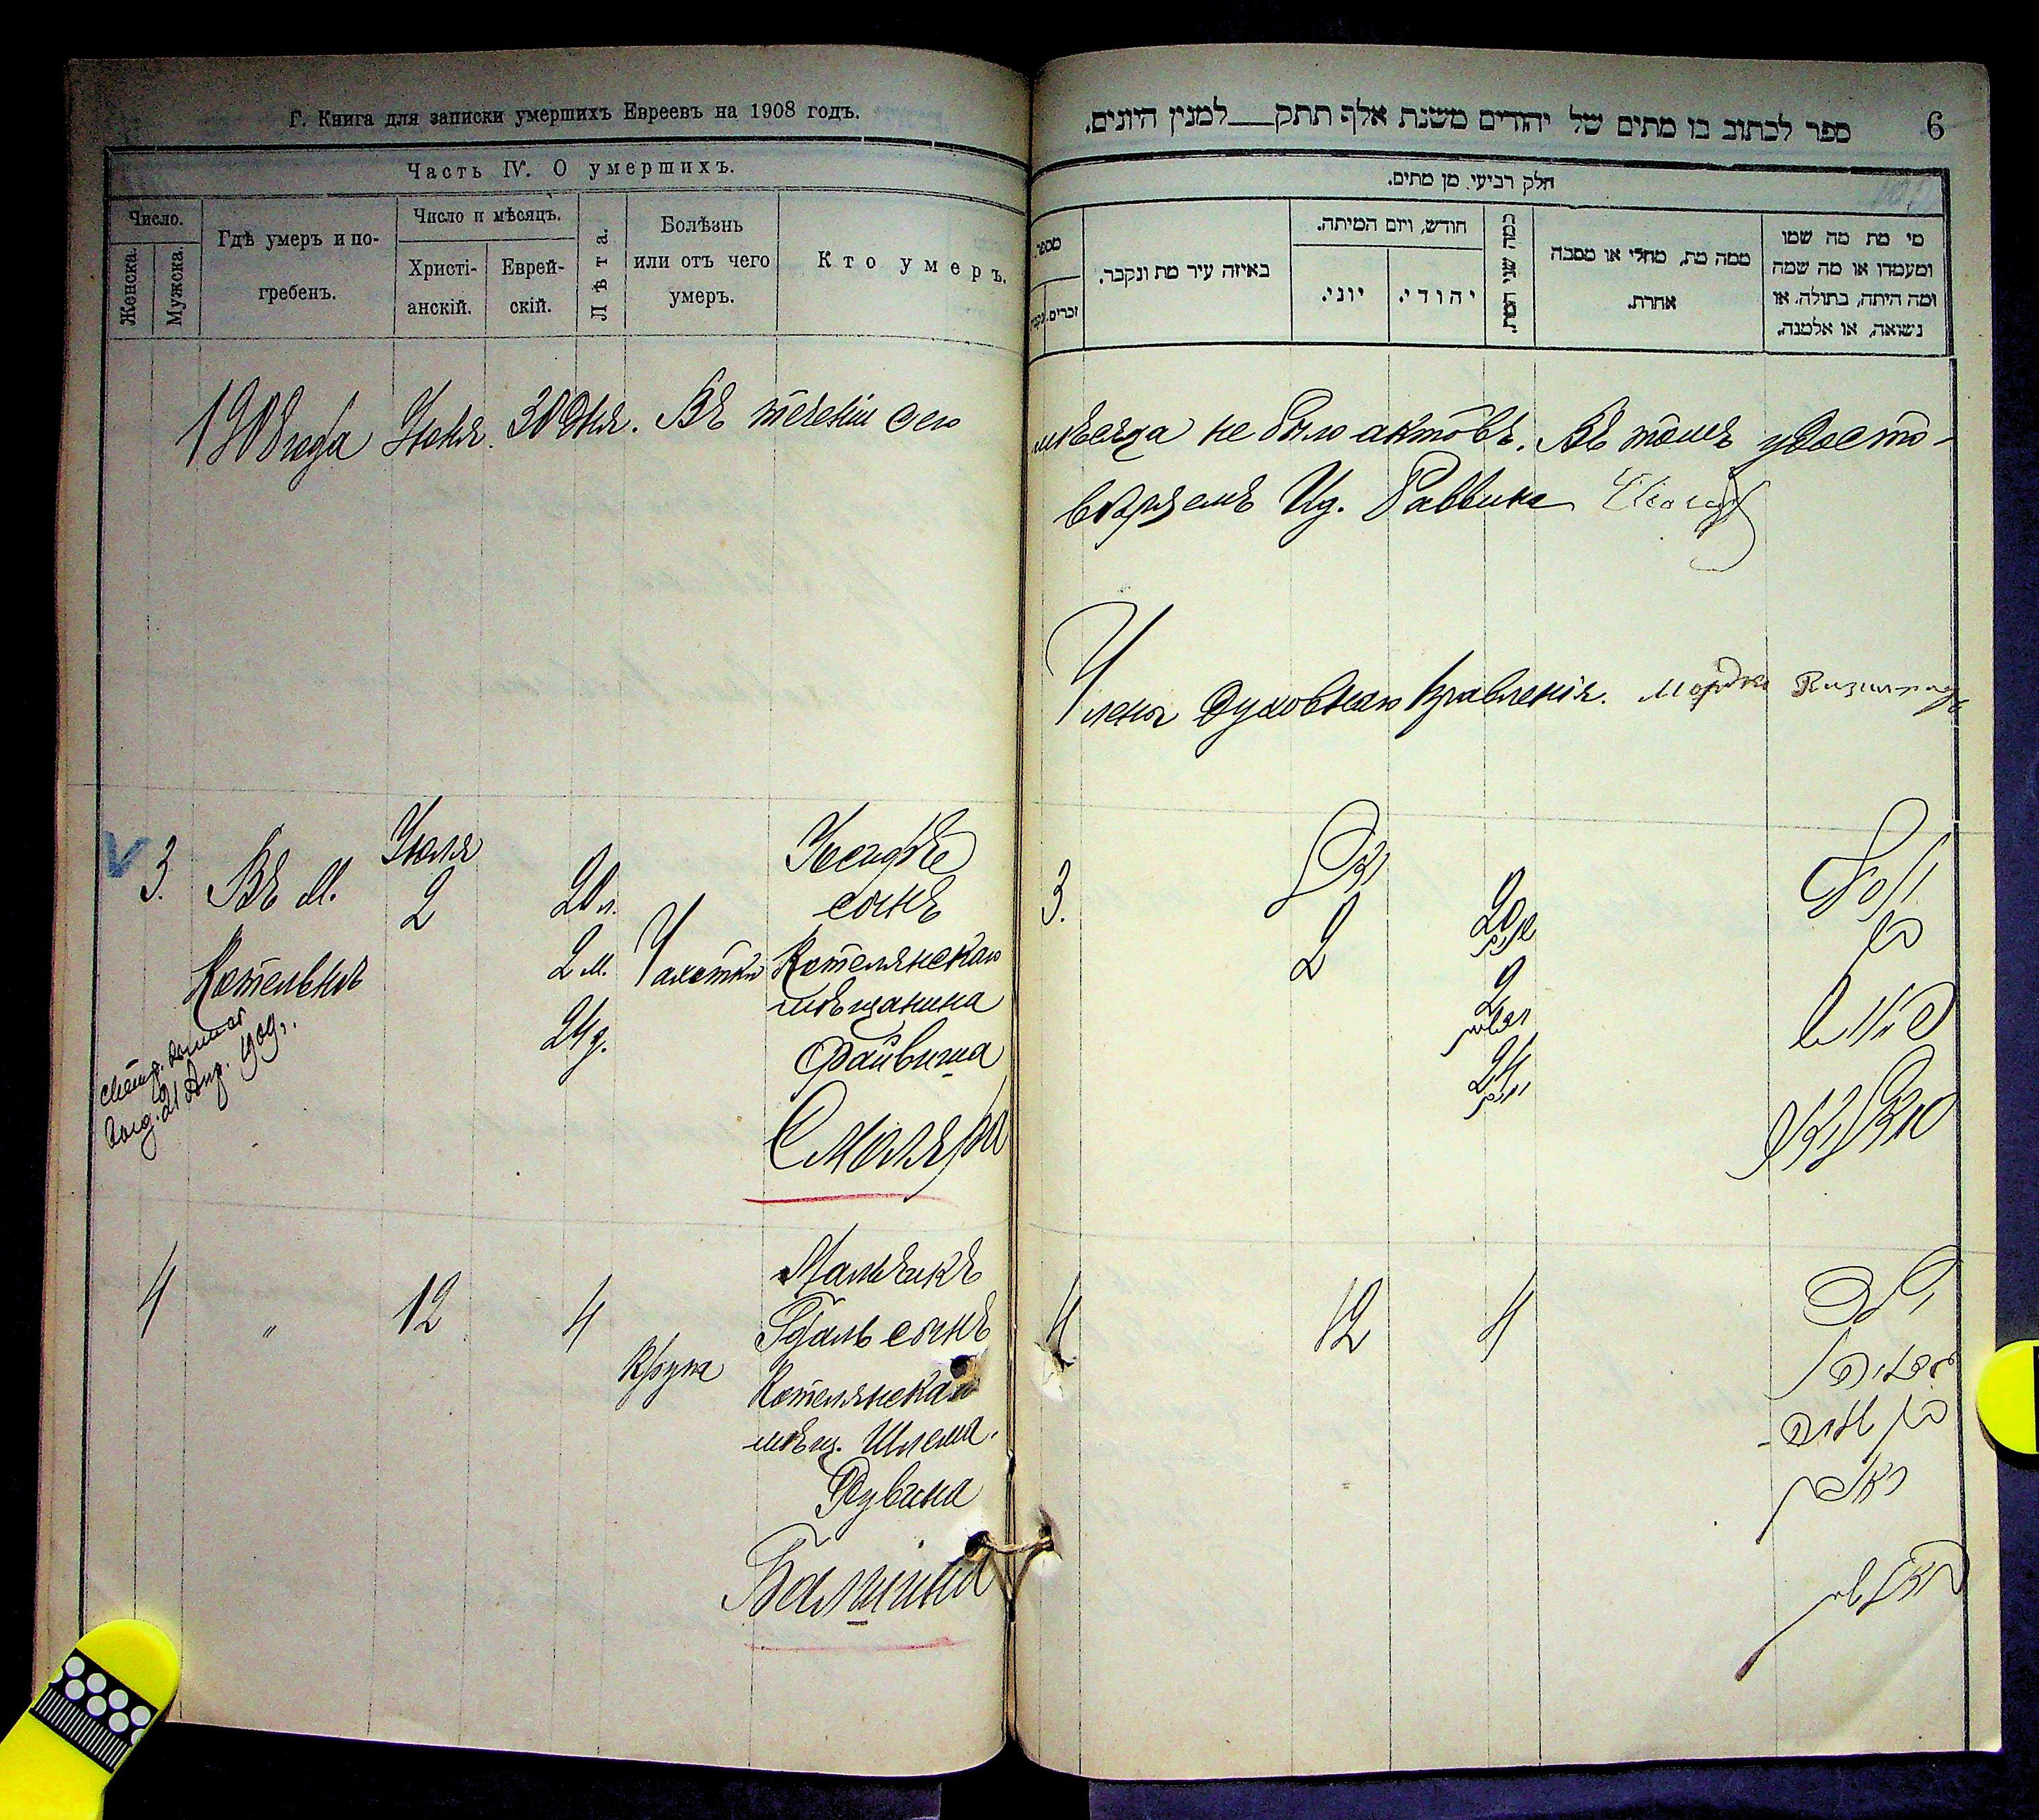 Г. Книга для записки умершихъ Евреевъ на 1908 годъ.
Часть IV. О умершихъ.
Число.
Женска.
Мужска.
Гдѣ умеръ и по-
гребенъ.
Число и мѣсяцъ.
Христі-
анскій.
Еврей-
скій.
Лѣта.
Болѣзнь
или отъ чего
умеръ.
Кто умеръ.
1908 года Іюня 30 дня. Въ теченіи сего
3. Въ М.
Котельнѣ
Іюля
2
20 л.
2 м.
24 д.
Чахотки
Іосифъ
сынъ
Котелянскаго
мѣщанина
Файвиша
Смоляра
21 Апр. 1909 г.
4
"
12
4
Крупа
Мальчикъ
Гдаль сынъ
Котелянскаго
мѣщ. Шлема
Рувина
ספר לכתוב בו מתים של יהודים משנת אלף תתק__למנין היונים.
6
חלק רביעי מן מתים.
מספר
זכרים.
באיזה עיר מת ונקבר.
חודש, ויום המיתה.
יוני.
יהודי.
כמה שני המת.
ממה מת, מחלי או מסבה
אחרת.
מי מת מה שמו
ומעמדו או מה שמה
ומה היתה, בתולה, או
נשואה, או אלמנה.
мѣсяца не было актовъ. Въ томъ удосто-
вѣряемъ Раввинъ
Члены Духовнаго Правленія. Мордко
3.
2
20
2
24
יוסף
בן
4
12
4